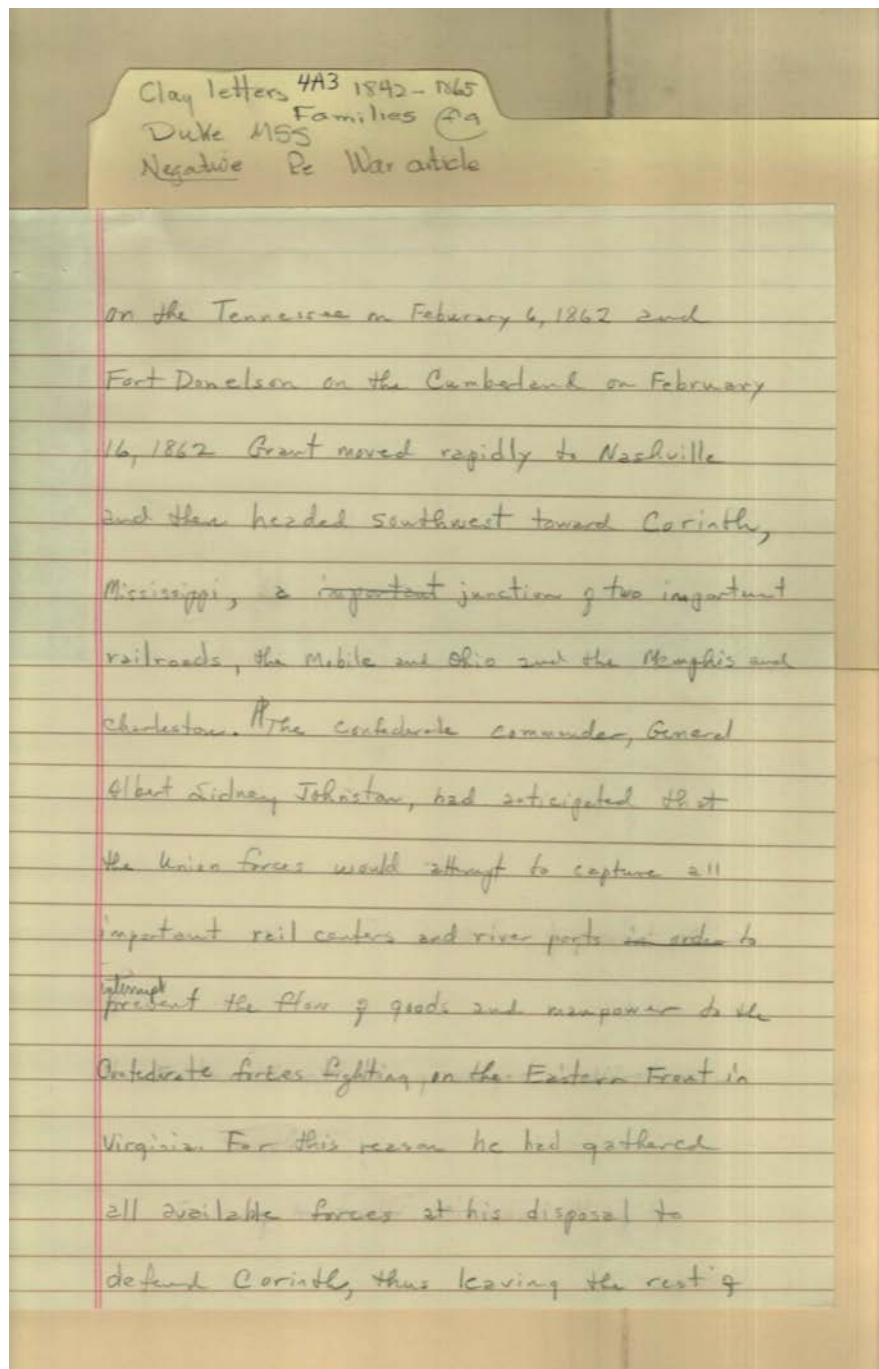 Clay letters 4A3 1842-1865
Families
Duke MSS
Negative Re War article
on the Tennessee on Feburary 6, 1862 and
Fort Donelson on the Cumberland on February
16, 1862 Grant moved rapidly to Nashville
and then headed southwest toward Corinth,
Mississippi, a important junction of two important
railroads, the Mobile and Ohio and the Memphis and
Charleston. ¶The Confederate commander, General
Albert Sidney Johnston, had anticipated that
the Union forces would attempt to capture all
important rail centers and river ports in order to
interrupt
prevent the flow of goods and manpower to the
Confederate forces fighting on the Eastern Front in
Virginia. For this reason he had gathered
all available forces at his disposal to
defend Corinth, thus leaving the rest of